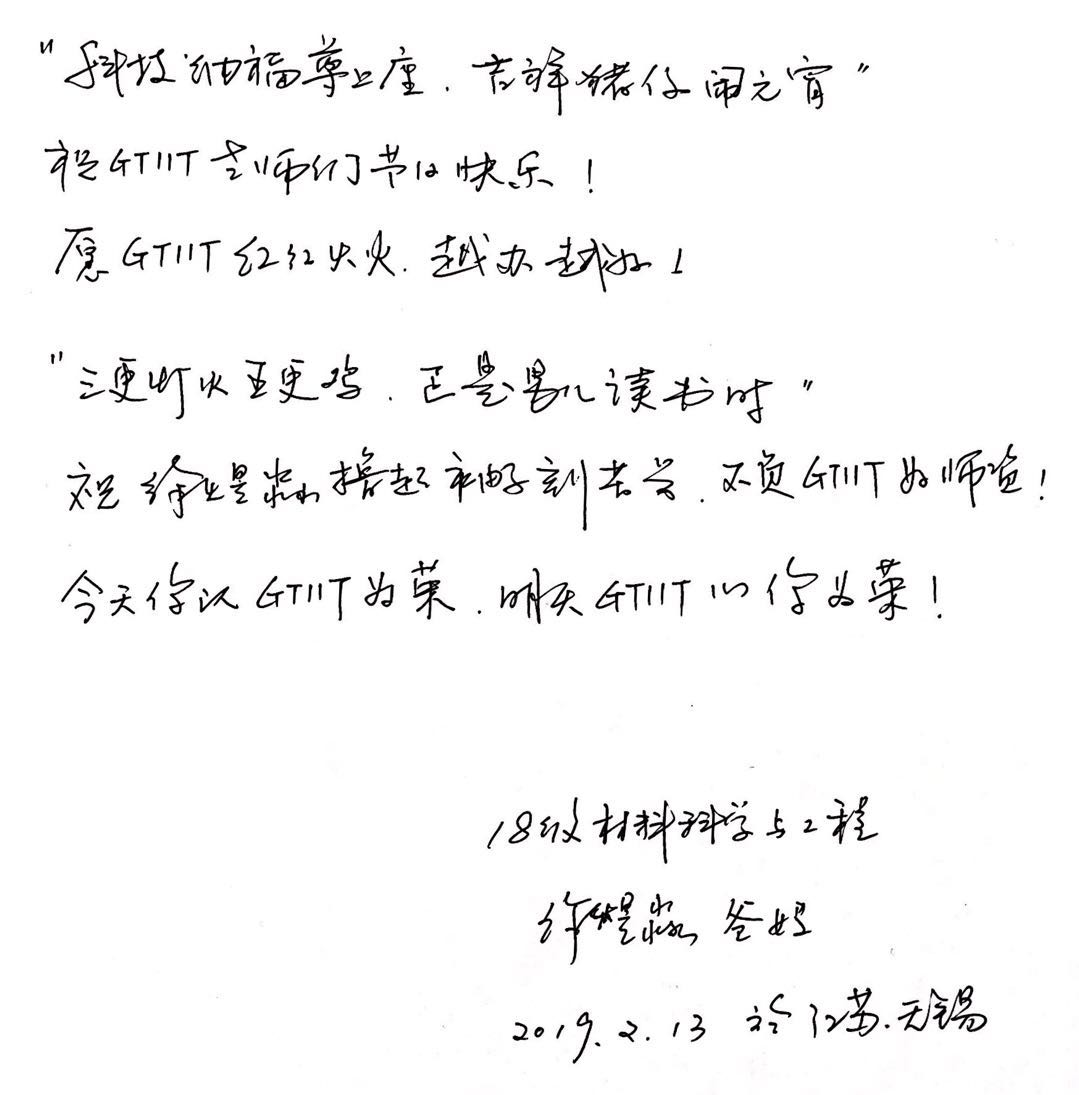 "科技纳福尊上座，吉祥猪仔闹元宵"
祝GTIIT老师们节日快乐！
愿GTIIT红红火火，越办越好！
"三更灯火五更鸡，正是男儿读书时"
祝徐撸起袖子刻苦学，不负GTIIT好师资！
今天你以GTIIT为荣，明天GTIIT以你为荣！
18级材料科学与工程
徐 爸妈
2019.2.13 於江苏.无锡